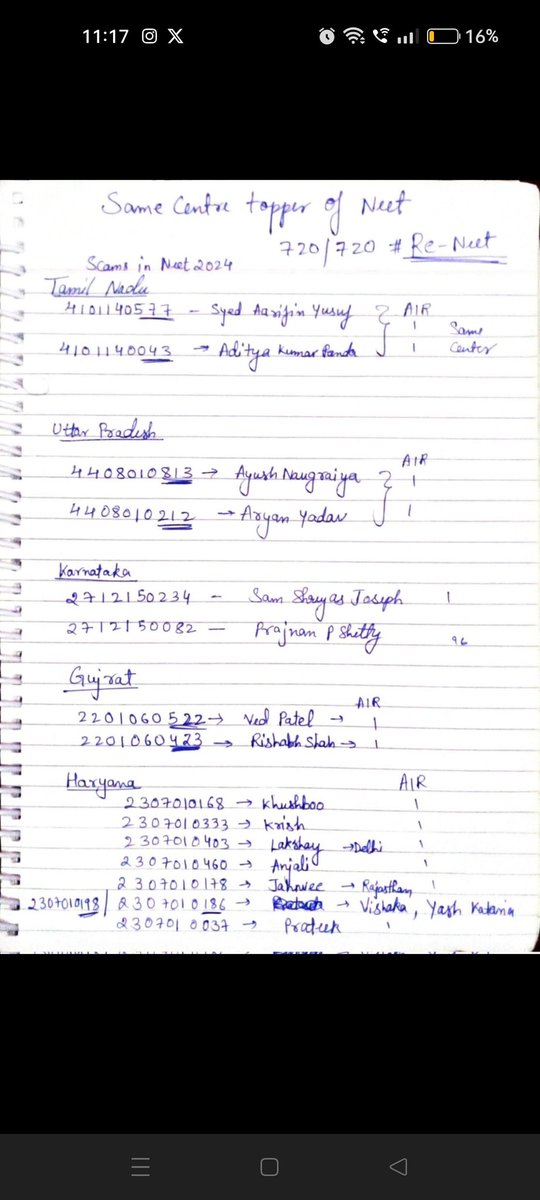 11:17 16%
Same Centre topper of Neet
720/720 # Re-Neet
Scams in Neet 2024
Tamil Nadu
4101140577 - Syed Aarifin Yusuf } AIR 1
4101140043 → Aditya Kumar Panda 1 Same Center
Uttar Pradesh
AIR
4408010813 → Ayush Naugraiya } 1
4408010212 → Aryan Yadav 1
Karnataka
2712150234 - Sam Shreyas Joseph 1
2712150082 - Prajnan P Shetty 96
Gujrat
AIR
2201060522 → Ved Patel → 1
2201060423 → Rishabh Shah → 1
Haryana AIR
2307010168 → Khushboo 1
2307010333 → Krish 1
2307010403 → Lakshay → Delhi 1
2307010460 → Anjali 1
2307010178 → Jahnvee → Rajasthan 1
2307010198 / 2307010186 → → Vishaka, Yash Kataria
2307010037 → Prateek 1